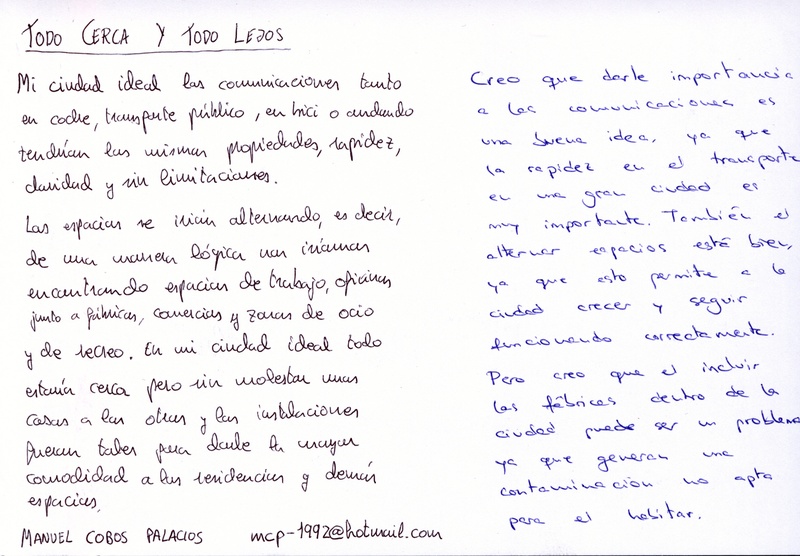 TODO CERCA Y TODO LEJOS
Mi ciudad ideal las comunicaciones tanto
en coche, transporte público, en bici o andando
tendrían las mismas propiedades, rapidez,
claridad y sin limitaciones.
Los espacios se irían alternando, es decir,
de una manera lógica nos iríamos
encontrando espacios de trabajo, oficinas
junto a fábricas, comercios y zonas de ocio
y de recreo. En mi ciudad ideal todo
estaría cerca pero sin molestar unas
casas a las otras y las instalaciones
fueran tales para darle la mayor
comodidad a las residencias y demás
espacios.
MANUEL COBOS PALACIOS mcp-1992@hotmail.com
Creo que darle importancia
a las comunicaciones es
una buena idea, ya que
la rapidez en el transporte
en una gran ciudad es
muy importante. También el
alternar espacios está bien,
ya que esto permite a la
ciudad crecer y seguir
funcionando correctamente.
Pero creo que el incluir
las fábricas dentro de la
ciudad puede ser un problema
ya que generan una
contaminación no apta
para el habitar.